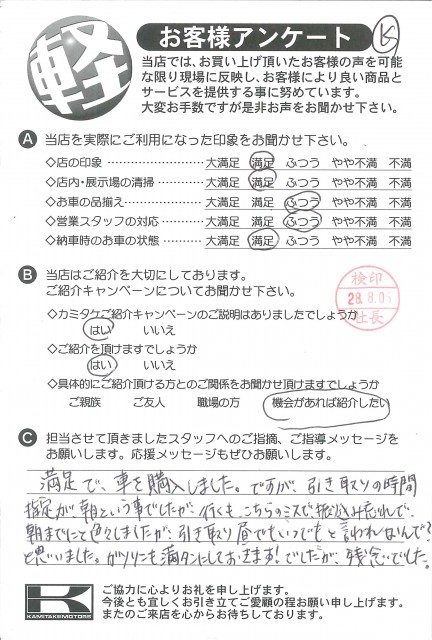 軽
お客様アンケート
当店では、お買い上げ頂いたお客様の声を可能
な限り現場に反映し、お客様により良い商品と
サービスを提供する事に努めています。
大変お手数ですが是非お声をお聞かせ下さい。
A 当店を実際にご利用になった印象をお聞かせ下さい。
◇店の印象 大満足 満足 ふつう やや不満 不満
◇店内・展示場の清掃 大満足 満足 ふつう やや不満 不満
◇お車の品揃え 大満足 満足 ふつう やや不満 不満
◇営業スタッフの対応 大満足 満足 ふつう やや不満 不満
◇納車時のお車の状態 大満足 満足 ふつう やや不満 不満
B 当店はご紹介を大切にしてあります。
ご紹介キャンペーンについてお聞かせ下さい。
検印
28.8.05
社長
◇カミタケご紹介キャンペーンのご説明はありましたでしょうか
はい いいえ
◇ご紹介を頂けますでしょうか
はい いいえ
◇具体的にご紹介頂ける方とのご関係をお聞かせ頂けますでしょうか
ご親族 ご友人 職場の方 機会があれば紹介したい
C 担当させて頂きましたスタッフへのご指摘、ご指導メッセージを
お願いします。応援メッセージもぜひお願いします。
満足で、車を購入しました。ですが、引き取りの時間
指定が、朝という事でしたが、行くも、こちらのミスで振込み忘れで、
朝までにと色々しましたが、引き取り昼でもいつでもと言われなんで?
と思いました。ガソリンも満タンにしておきます!でしたが、残念でした。
K
KAMITAKEMOTORS
ご協力に心よりお礼を申し上げます。
今後とも宜しくお引き立てご愛顧の程お願い申し上げます。
またのご来店を心からお待ちしております。